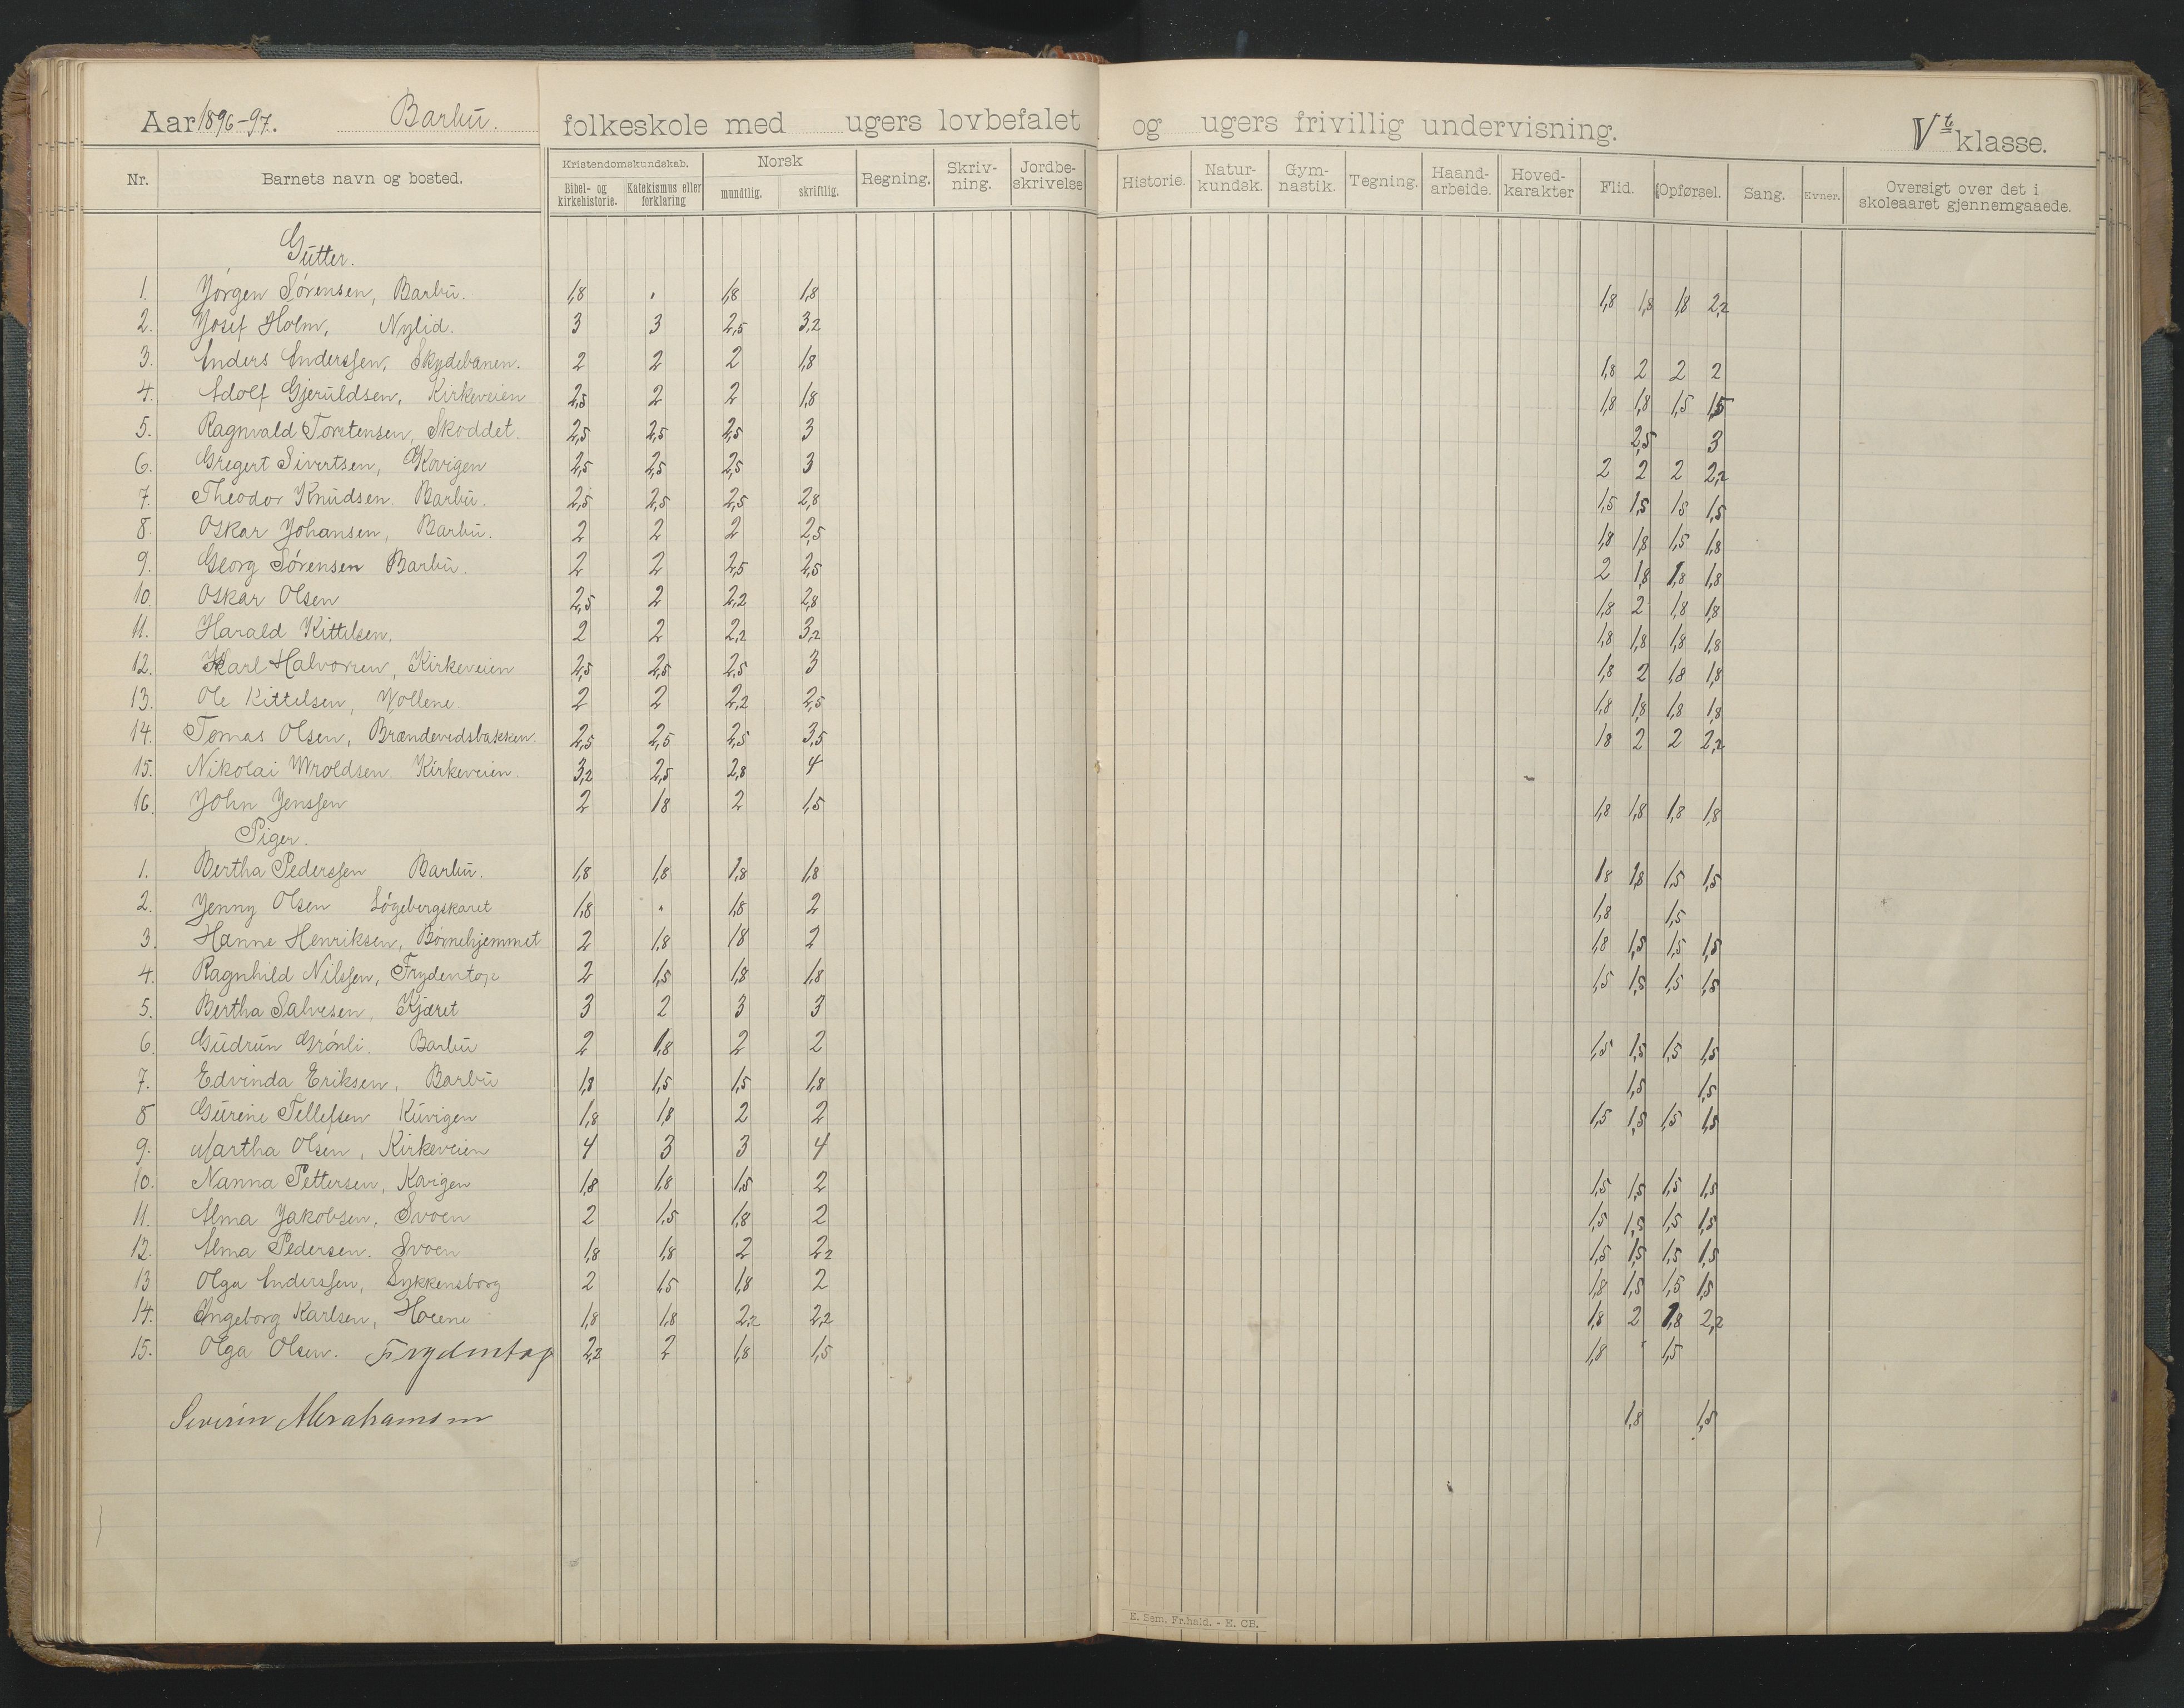 Aar 1896-97. Barbu. folkeskole med ugers lovbefalet og ugers frivillig undervisning. Vte klasse.
Nr. Barnets navn og bosted. Kristendomskundskab. Bibel- og kirkehistorie. Katekismus eller forklaring Norsk mundtlig. skriftlig. Regning. Skriv-ning. Jordbe-skrivelse Historie. Natur-kundsk. Gym-nastik. Tegning. Haand-arbeide. Hoved-karakter Flid. Opførsel. Sang. Evner. Oversigt over det i skoleaaret gjennemgaaede.
Gutter.
1. Jörgen Sörensen, Barbu. 1,8 . 1,8 1,8 1,8 1,8 1,8 2,2
2. Josef Holm, Nylid. 3 3 2,5 3,2
3. Anders Anderssen, Skydebanen. 2 2 2 1,8 1,8 2 2 2
4. Adolf Gjeruldsen, Kirkeveien 2,5 2 2 1,8 1,8 1,8 1,5 1,5
5. Ragnvald Torstensen, Skoddet. 2,5 2,5 2,5 3 2,5 3
6. Gregert Sivertsen, Kovigen 2,5 2,5 2,5 3 2 2 2 2,2
7. Theodor Knudsen. Barbu. 2,5 2,5 2,5 2,8 1,5 1,5 1,5 1,5
8. Oskar Johansen, Barbu. 2 2 2 2,5 1,8 1,8 1,5 1,8
9. Georg Sörensen Barbu. 2 2 2,5 2,5 2 1,8 1,8 1,8
10. Oskar Olsen 2,5 2 2,2 2,8 1,8 2 1,8 1,8
11. Harald Kittilsen, 2 2 2,2 3,2 1,8 1,8 1,8 1,8
12. Karl Halvorsen, Kirkeveien 2,5 2,5 2,5 3 1,8 2 1,8 1,8
13. Ole Kittilsen, Vollene. 2 2 2,2 2,5 1,8 1,8 1,8 1,8
14. Tomas Olsen, Brændevedsbakken. 2,5 2,5 2,5 3,5 1,8 2 2 2,2
15. Nikolai Wroldsen. Kirkeveien. 3,2 2,5 2,8 4
16. John Jenssen 2 1,8 2 1,5 1,8 1,8 1,8 1,8
Piger.
1. Bertha Pederssen Barbu. 1,8 1,8 1,8 1,8 1,8 1,8 1,5 1,5
2. Jenny Olsen Lögebergskaret 1,8 . 1,8 2 1,8 1,5
3. Hanne Henriksen, Börnehjemmet 2 1,8 1,8 2 1,8 1,5 1,5 1,5
4. Ragnhild Nilssen, Frydentop 2 1,5 1,8 1,8 1,5 1,5 1,5 1,5
5. Bertha Salvesen, Kjæret 3 2 3 3
6. Gudrun Grönli. Barbu 2 1,8 2 2 1,5 1,5 1,5 1,5
7. Edvinda Eriksen, Barbu 1,8 1,5 1,5 1,8 1,5 1,5
8 Gurine Tellefsen Kuvigen 1,8 1,8 2 2 1,5 1,5 1,5 1,5
9. Martha Olsen, Kirkeveien 4 3 3 4
10. Nanna Pettersen, Kovigen 1,8 1,8 1,5 2 1,5 1,5 1,5 1,5
11. Alma Jakobsen, Svoen 2 1,5 1,8 2 1,5 1,5 1,5 1,5
12. Alma Pedersen. Svoen 1,8 1,8 2 2,2 1,5 1,5 1,5 1,5
13 Olga Anderssen, Lykkensborg 2 1,5 1,8 2 1,8 1,5 1,5 1,5
14. Ingeborg Karlsen, 1,8 1,8 2,2 2,2 1,8 2 1,8 2,2
15. Olga Olsen. Frydentop 2,2 2 1,8 1,5 1,8 1,5
Severin Abrahamsen 1,8 1,5
E. Sem. Fr.hald. - E. CB.